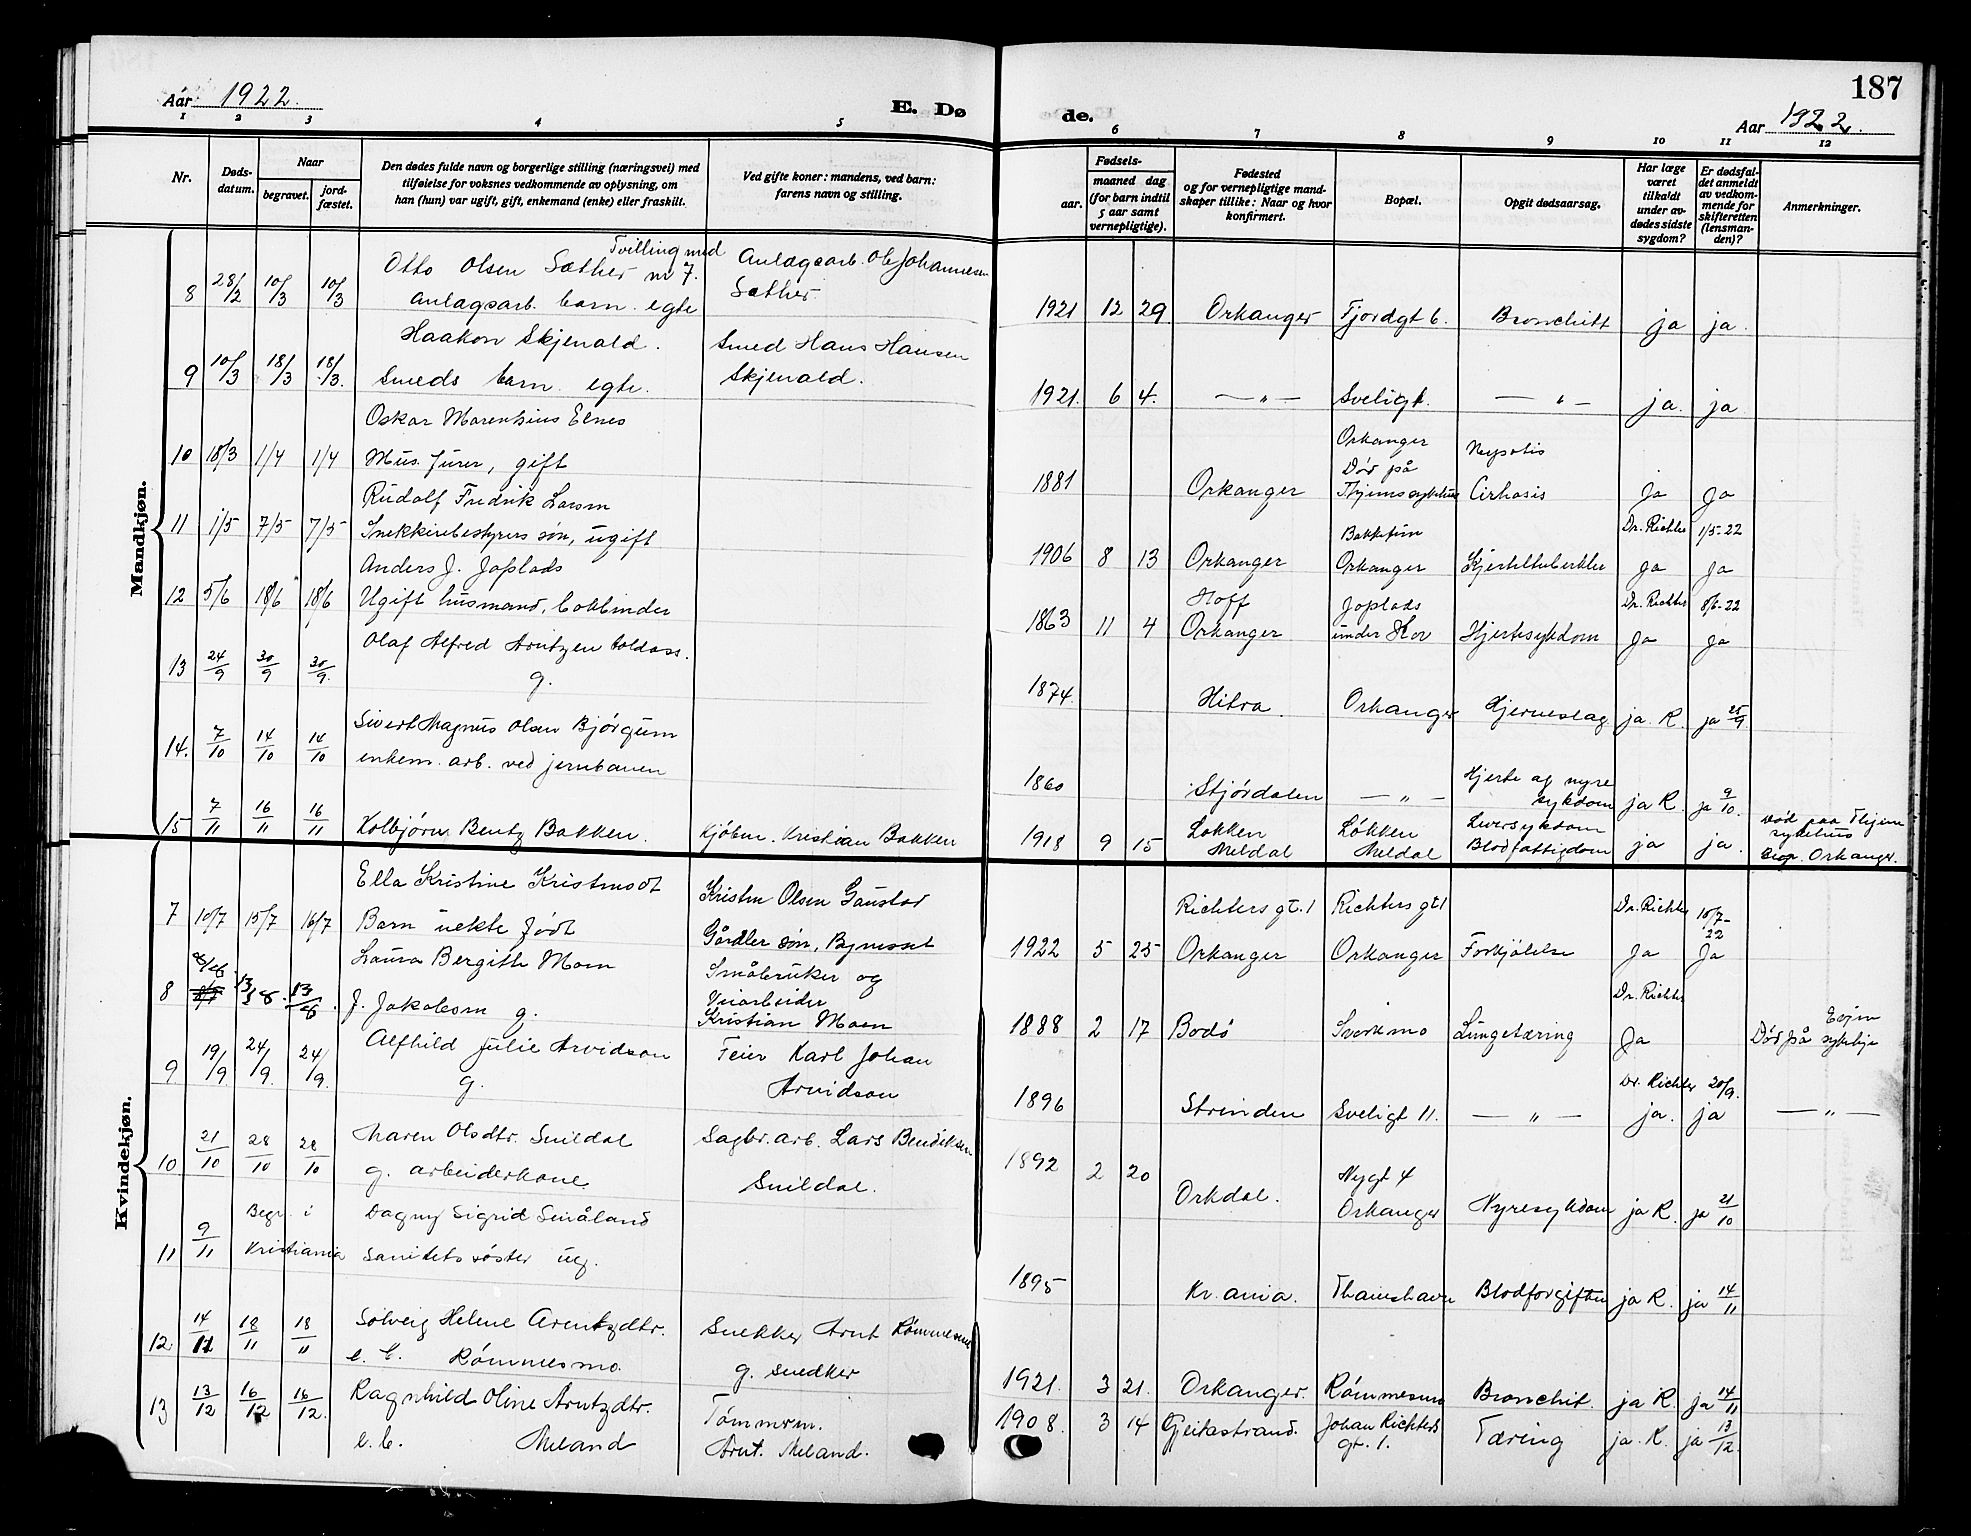 Aar 1922.
E. Dø
1 2 3 4 5
Nr.
Døds-
datum.
Naar
begravet.
jord-
fæstet.
Den dødes fulde navn og borgerlige stilling (næringsvei) med
tilføielse for voksnes vedkommende av oplysning, om
han (hun) var ugift, gift, enkemand (enke) eller fraskilt.
Ved gifte koner: mandens, ved barn:
farens navn og stilling.
Mandkjøn.
Tvilling med
Otto Olsen Sæther nr 7. Anlægsarb. Ole Johannesen
8 28/2 10/3 10/3 Anlægsarb. barn egte Sæther.
Haakon Skjenald. Smed Hans Hansen
9 10/3 18/3 18/3. Smeds barn egte. Skjenald.
Oskar Marentsius Elnes
10 18/3 1/4 1/4 Mus. furer, gift
Rudolf Fredrik Larsen
11 1/5 7/5 7/5 Snekkerbestyrers søn, ugift
Anders J. Joplads
12 5/6 18/6 18/6 Ugift husmand, bokbinder
Olaf Alfred Arntzen toldass.
13 24/9 30/9 30/9. g.
Sivert Magnus Olsen Bjørgum
14. 7/10 14/10 14/10 enkem. arb. ved jernbanen
15 7/11 16/11 16/11 Kolbjørn Bentz Bakken. Kjøbm. Kristian Bakken
Kvindekjøn.
Ella Kristine Kristensdt Kristen Olsen Gaustad
7 10/7 15/7 16/7 Barn uekte født Gårdbr søn, Bynesset
Laura Bergith Moen Småbruker og
8 13/8 13/8. f. Jakobsen g. Veiarbeider
Kristian Moen
Alfhild Julie Arvidson Feier Karl Johan
9 19/9 24/9. 24/9. g. Arvidson
Maren Olsdtr. Snildal Sagbr. arb. Lars Bendiksen
10 21/10 28/10 28/10 g. arbeiderkone Snildal.
Begr. i Dagny Sigrid Småland
11 9/11 Kristiania Sanitetssøster ug.
Solveig Helene Arentzdtr. Snekker Arnt Rømmesmo
12. 14/11 18/11 18/11 e. b. Rømmesmo. g. snedker
13 13/12 16/12 16/12. Ragnhild Oline Arntzdtr. Tømmerm.
e. b. Meland Arnt. Meland.
187
de.
Aar 1922.
6 7 8 9 10 11 12
Fødsels-
aar.
maaned dag
(for barn indtil
5 aar samt
vernepligtige).
Fødested
og for vernepligtige mand-
skaper tillike: Naar og hvor
konfirmert.
Bopæl.
Opgit dødsaarsag.
Har læge
været
tilkaldt
under av-
dødes sidste
sygdom?
Er dødsfal-
det anmeldt
av vedkom-
mende for
skifteretten
(lensman-
den)?
Anmerkninger.
1921 12 29 Orkanger Fjordgt 6. Bronchitt ja ja.
1921. 6 4. — " — Sveligt. — " — ja. ja
Orkanger
Død på
1881 Orkanger Thjems sykehus Cirhosis Ja Ja
Bakketun Dr. Richter 1/5-22
1906 8 13 Orkanger Orkanger Kjerteltuberkler Ja Ja
Hoff Joplads Dr. Richter 8/6-22
1863 11 4 Orkanger under Hov Hjertesykdom Ja Ja
1874. Hitra. Orkanger Hjerneslag ja. R. ja 25/9
Hjerte og nyre
1860 Stjørdalen — " — sykdom ja R. ja 9/10.
Løkken Løkken Leversykdom Død paa Thjem
1918 9 15 Meldal Meldal Blodfattigdom ja ja. sykehus
Orkanger.
Richters gt. 1 Richters gt 1 Dr. Richter 10/7-22
1922 5 25 Orkanger Orkanger Forkjølelse Ja Ja
Dr. Richter
1888 2 17 Bodø Svorkmo Lungetæring Ja Død på sykehje
Dr. Richter 20/9.
1896 Strinden Sveligt 11. — " — ja. ja — " —
1892 2 20 Orkdal. Nygt 4
Orkanger Nyresykdom ja R. ja 21/10
1895 Kr.ania. Thamshavn Blodforgiften ja R. ja 14/11
1921. 3 21. Orkanger. Rømmesmo Bronchit. ja R. ja 14/11
1908. 3 14 Gjeitastrand. Johan Richters
gt. 1. Tæring ja. R. ja 13/12.